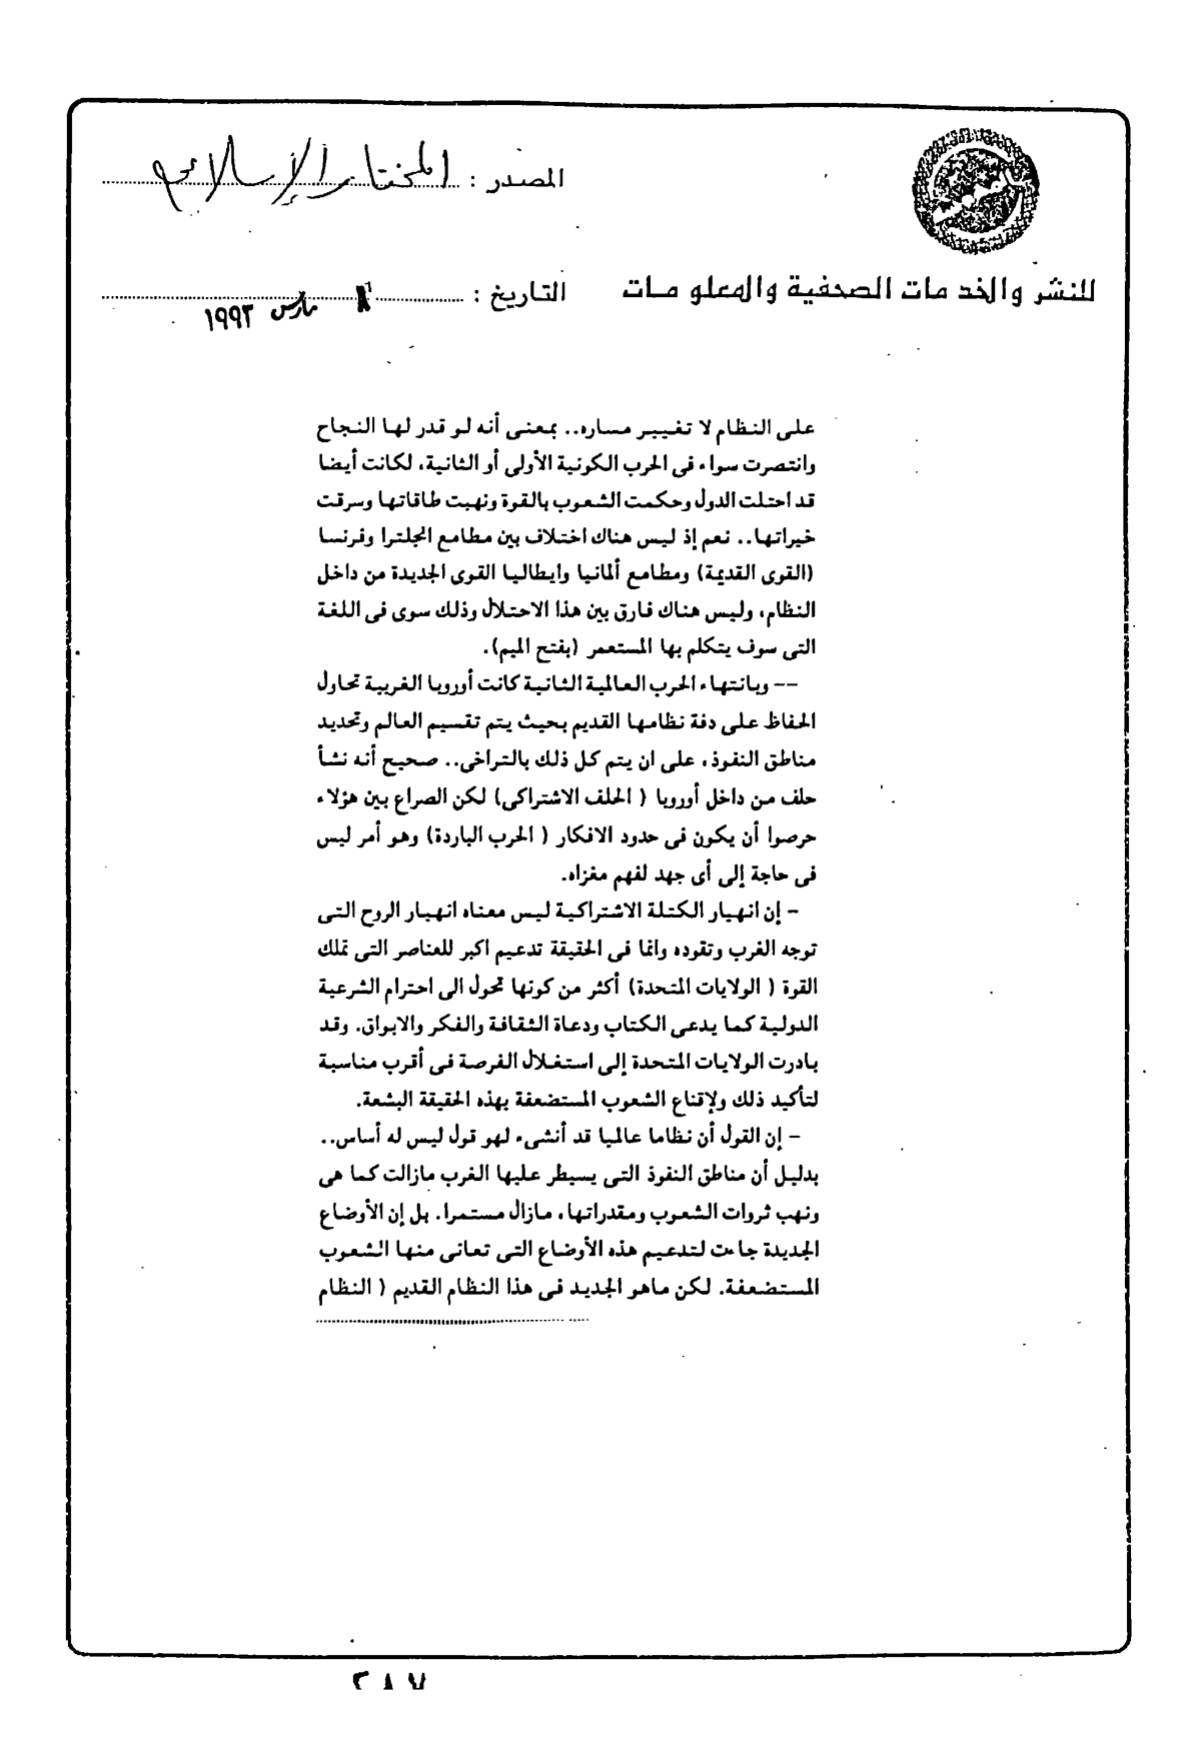 المصدر : المختار الإسلامى
للنشر والخدمات الصحفية والمعلومات
التاريخ : مارس ١٩٩٣
على النظام لا تغيير مساره.. بمعنى أنه لو قدر لها النجاح
وانتصرت سواء فى الحرب الكونية الأولى أو الثانية، لكانت أيضا
قد احتلت الدول وحكمت الشعوب بالقوة ونهبت طاقاتها وسرقت
خيراتها.. نعم إذ ليس هناك اختلاف بين مطامع انجلترا وفرنسا
(القوى القديمة) ومطامع ألمانيا وايطاليا القوى الجديدة من داخل
النظام، وليس هناك فارق بين هذا الاحتلال وذلك سوى فى اللغة
التى سوف يتكلم بها المستعمر (بفتح الميم).
-- وبانتهاء الحرب العالمية الثانية كانت أوروبا الغربية تحاول
الحفاظ على دفة نظامها القديم بحيث يتم تقسيم العالم وتحديد
مناطق النفوذ، على ان يتم كل ذلك بالتراخى.. صحيح أنه نشأ
حلف من داخل أوروبا ( الحلف الاشتراكى) لكن الصراع بين هؤلاء
حرصوا أن يكون فى حدود الافكار ( الحرب الباردة) وهو أمر ليس
فى حاجة إلى أى جهد لفهم مغزاه.
- إن انهيار الكتلة الاشتراكية ليس معناه انهيار الروح التى
توجه الغرب وتقوده وانما فى الحقيقة تدعيم اكبر للعناصر التى تملك
القوة ( الولايات المتحدة) أكثر من كونها تحول الى احترام الشرعية
الدولية كما يدعى الكتاب ودعاة الثقافة والفكر والابواق. وقد
بادرت الولايات المتحدة إلى استغلال الفرصة فى أقرب مناسبة
لتأكيد ذلك ولإقناع الشعوب المستضعفة بهذه الحقيقة البشعة.
- إن القول أن نظاما عالميا قد أنشىء لهو قول ليس له أساس..
بدليل أن مناطق النفوذ التى يسيطر عليها الغرب مازالت كما هى
ونهب ثروات الشعوب ومقدراتها، مازال مستمرا. بل إن الأوضاع
الجديدة جاءت لتدعيم هذه الأوضاع التى تعانى منها الشعوب
المستضعفة. لكن ماهو الجديد فى هذا النظام القديم ( النظام
٢٨٧